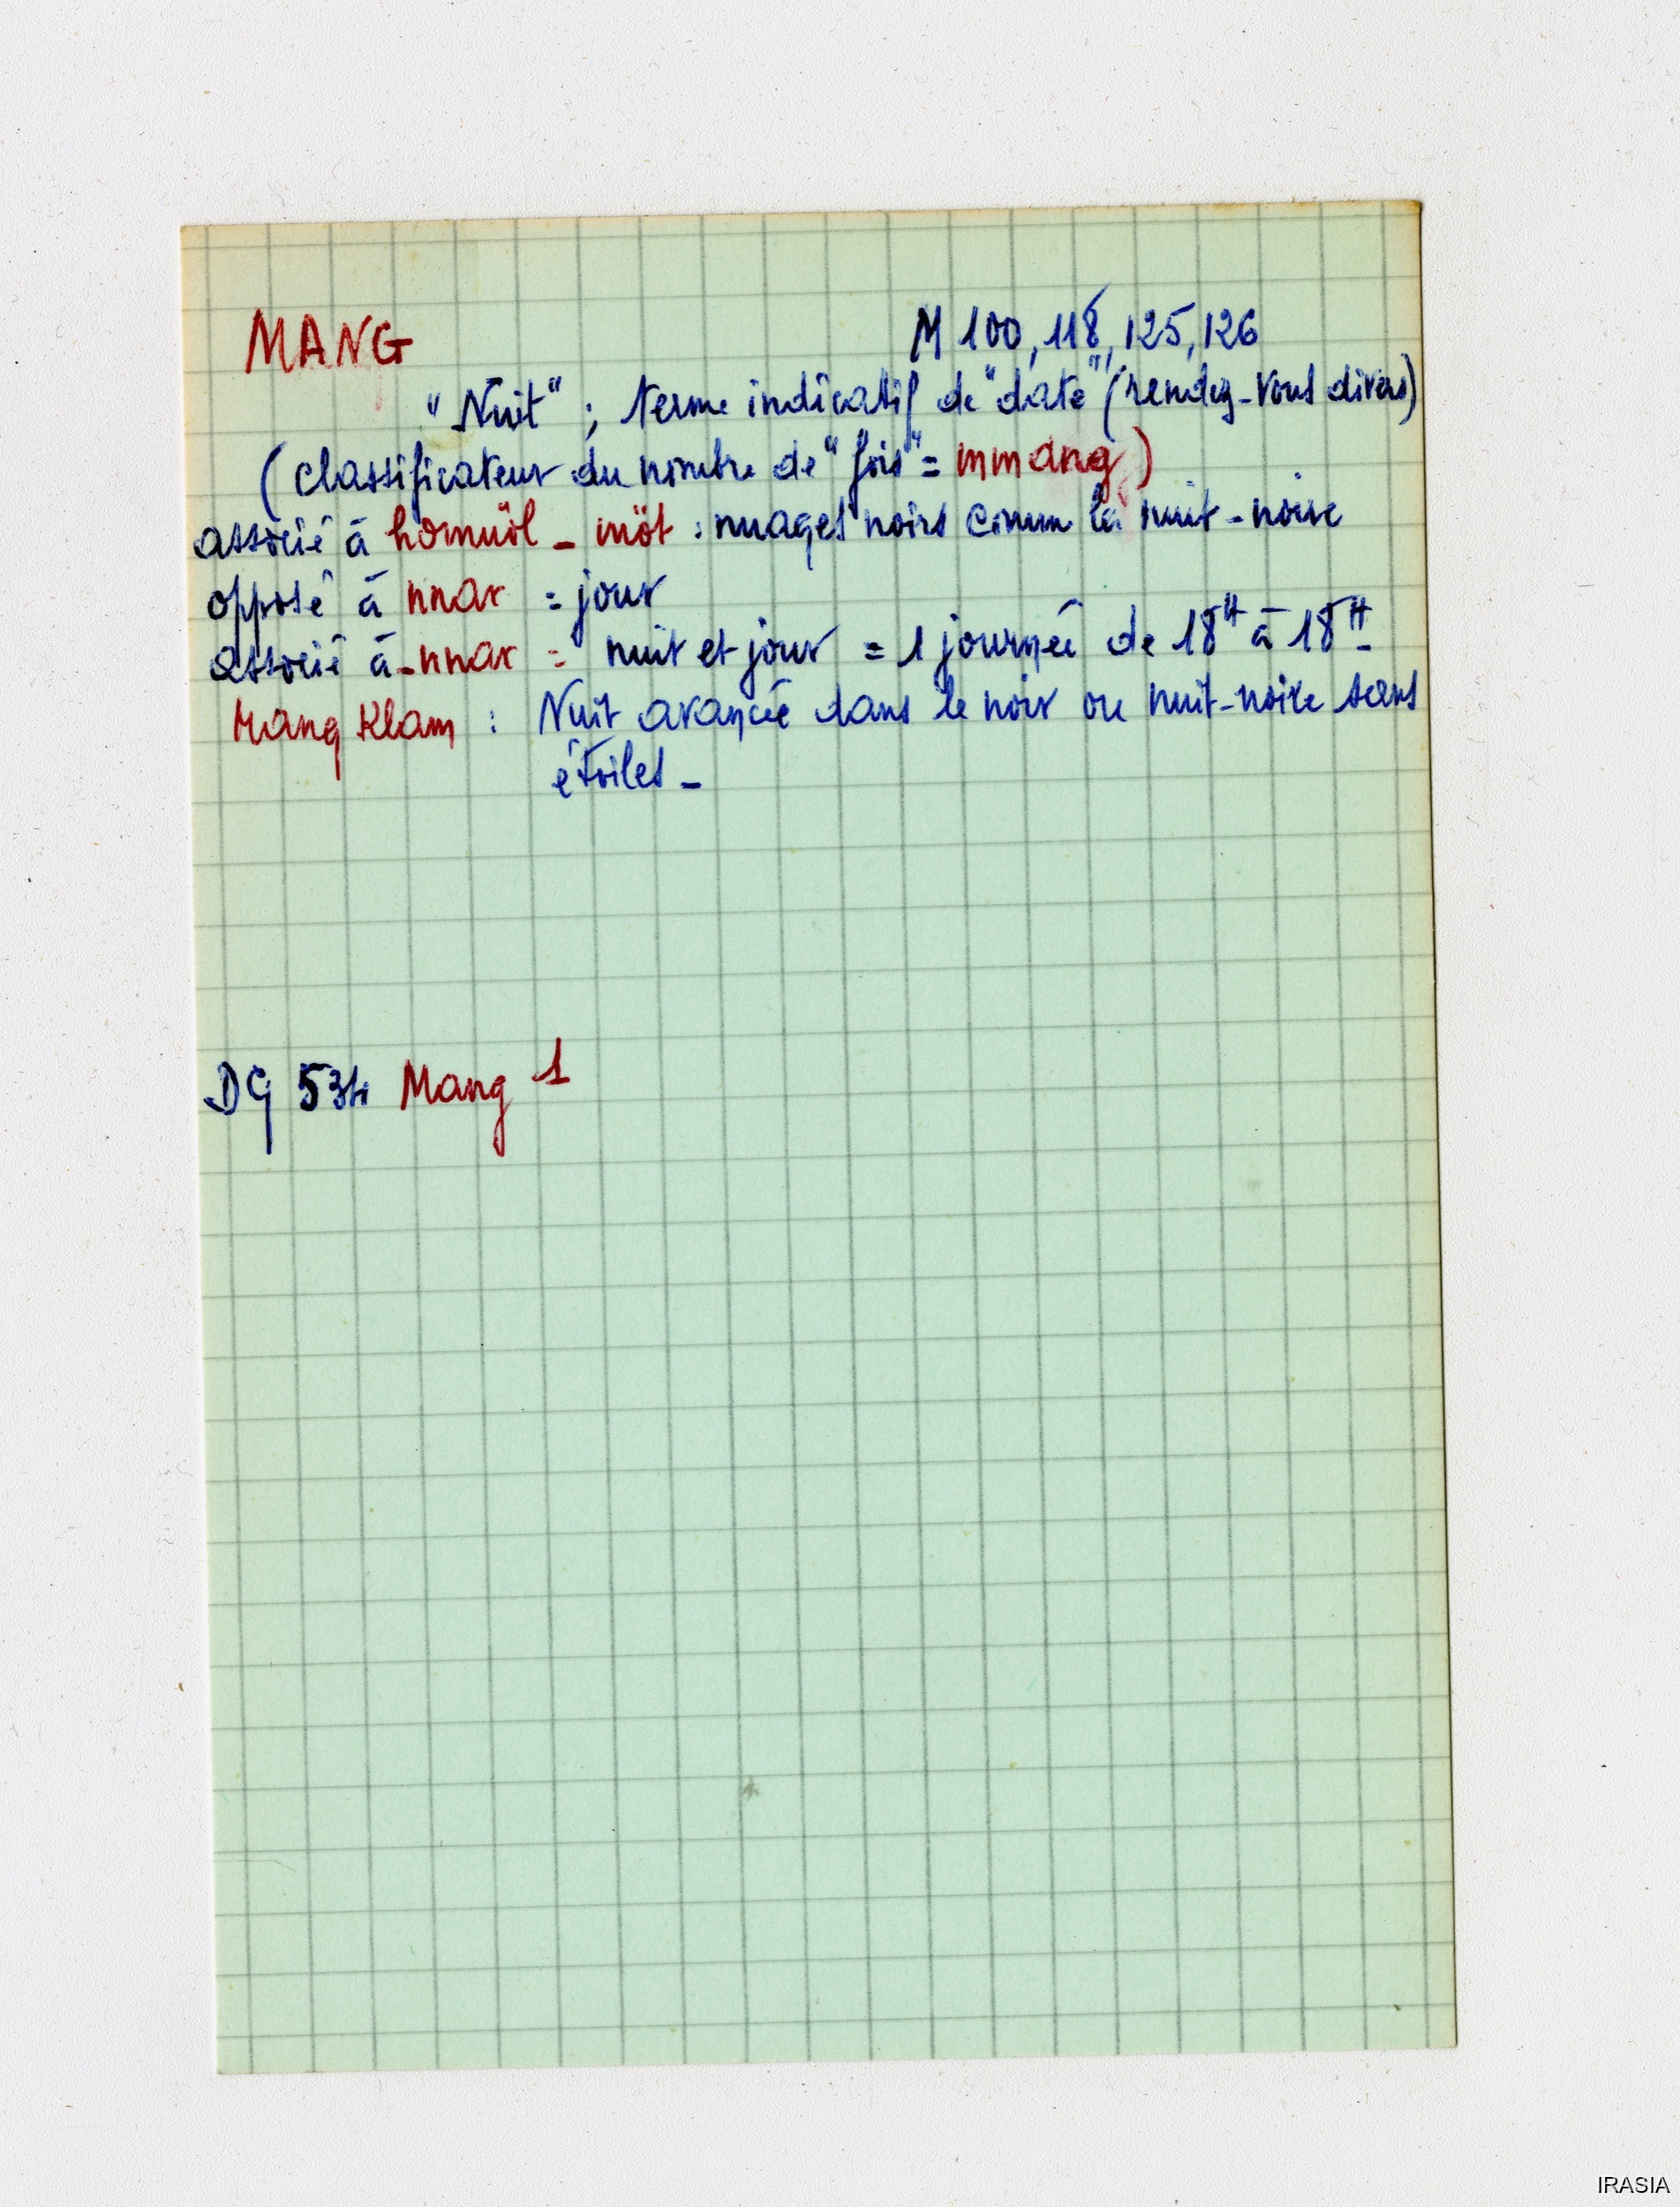 MANG M 100, 118, 125, 126
"Nuit" ; terme indicatif de "date" (rendez-vous divers)
(classificateur du nombre de "fois" = mmang)
associé à - möt : nuages noirs comme la nuit-noire
opposé à nnar = jour
associé à - nnar = nuit et jour = 1 journée de 18H à 18H -
Mang Klam : Nuit avançée dans le noir ou nuit-noire sans
étoiles -
DG 534 Mang 1
IRASIA